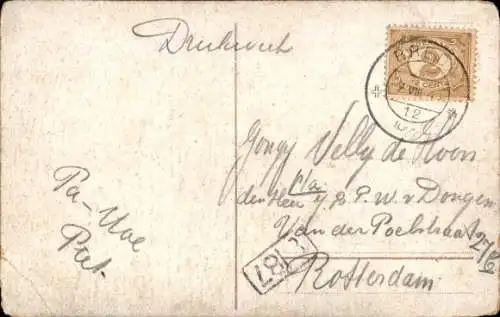 Drukwerk
Pa - Moe
Piet
Jongej Nelly de Hoon
p/a
den Heer J. B. P. W. v. Dongen
Van der Poelstraat 27
Rotterdam
187
12
2